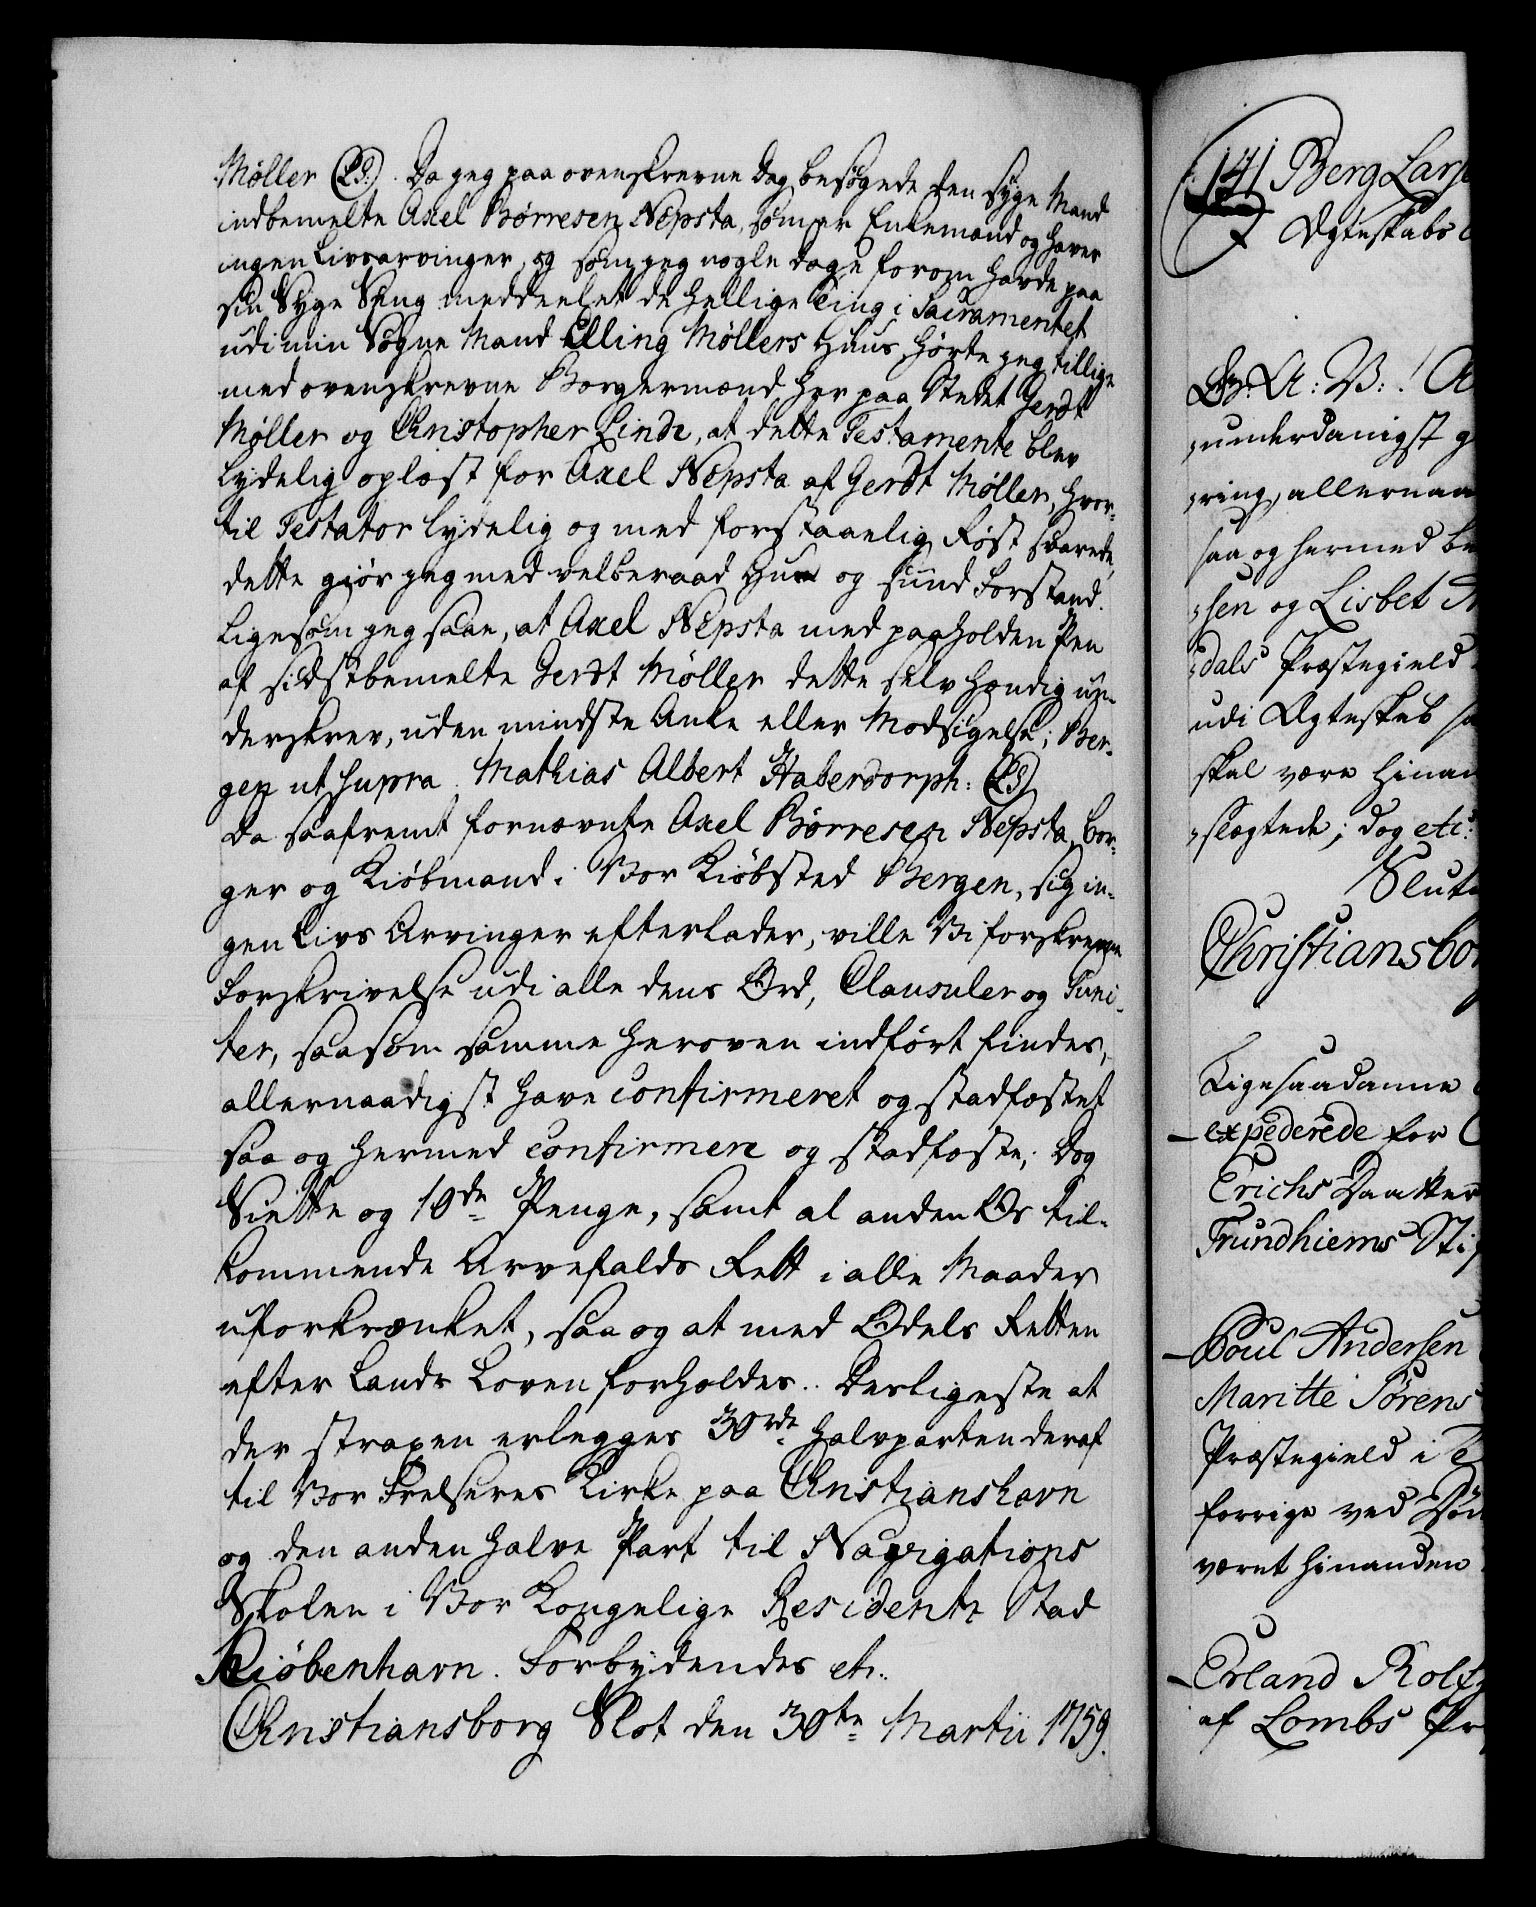 Møller (LS). Da jeg paa ovenskrevne Dag besøgede den syge Mand
indbemelte Axel Børresen Nepsta, som er Enkemand og haver
ingen Livsarvinger, og som jeg nogle dage forom havde paa
sin Syge Seng meddeelet de hellige Ting i Sacramentet
udi min Sogne Mand Elling Møllers Huus, hørte jeg tillige
med ovenskrevne Borgermænd her paa Stedet Gerdt
Møller og Christopher Linde, at dette Testamente blev
lydelig oplæst for Axel Nepsta af Gerdt Møller, hvor-
til Testator lydelig og med forstaanlig Røst svarede,
dette giør jeg med velberaad Hue og sund Forstand.
Ligesom jeg saae, at Axel Nepsta med paaholden Pen
af sidstbemelte Gerdt Møller dette selvhændig un-
derskrev, uden mindste Anke eller Modsigelse; Ber-
gen ut supra. Mathias Albert Haberdorph: (LS)
Da saafremt fornævnte Axel Børresen Nepsta, bor-
ger og Kiøbmand i Vor Kiøbsted Bergen, sig in-
gen Livs Arvinger efterlader, ville Vi forskrevne
Forskrivelse udi alle dens Ord, Clausuler og Puncter,
ter, saasom samme heroven indført findes,
allernaadigst have confirmeret og stadfæstet
saa og hermed confirmere og stadfæste; Dog
Siette og 10de Penge, samt al anden Os til-
kommende Arvefalds Rett i alle Maader
uforkrænket, saa og at med Odels Retten
efter Lands Loven forholdes. Desligeste at
der straxen erlegges 30rdr halvparten deraf
til Vor Frelseres Kirke paa Christianshavn
og den anden halve Part til Navigations
Skolen i Vor Kongelige Residentz Stad
Kiøbenhavn. Forbydendes etc.
Christiansborg Slot den 30te Martii 1759.
141 Berg Lars
Ægteskabs
Gr: A: V:! A
underdanigst
ring, allernaa
saa og hermed be
sen og Lisbet
dals Præstegield
udi Ægteskab
skal være hinan
slægtede; dog etc:
Slut
Christiansbo
Ligesaadanne
expederede for
Erichs Daatter
Trundhiems Sti
Poul Andersen
Maritte Sørens
Præstegield i
forrige ved Dø
været hinanden
Erland Rolf
af Lombs Pr